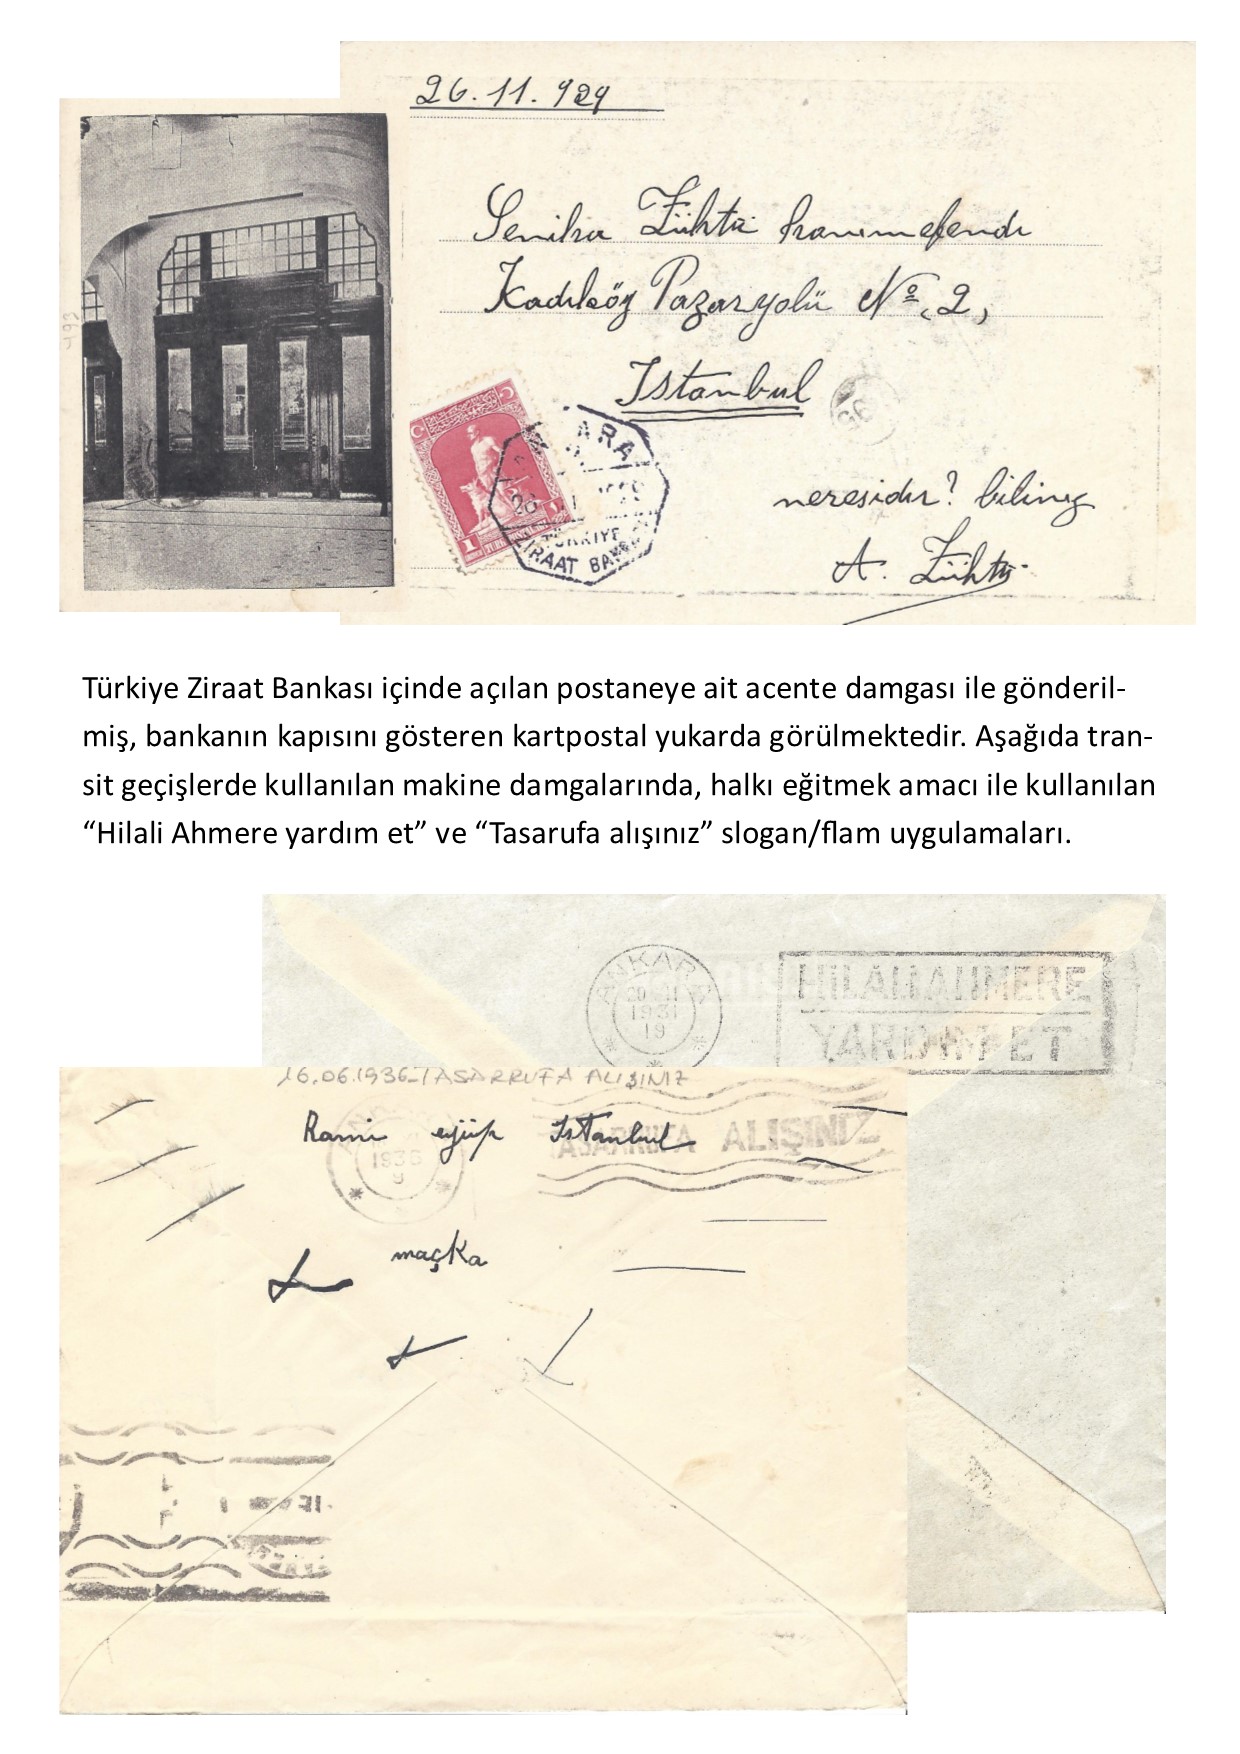 26.11.929
Seniha Zühtü hanımefendi
Kadıköy Pazaryolu No. 2,
Istanbul
neresidir? biliniz
A. Zühtü
1
ANKARA
26
TÜRKİYE
ZİRAAT BANKASI
Türkiye Ziraat Bankası içinde açılan postaneye ait acente damgası ile gönderil-
miş, bankanın kapısını gösteren kartpostal yukarda görülmektedir. Aşağıda tran-
sit geçişlerde kullanılan makine damgalarında, halkı eğitmek amacı ile kullanılan
“Hilali Ahmere yardım et” ve “Tasarufa alışınız” slogan/flam uygulamaları.
ANKARA
20 II
1931
19
HİLALİAHMERE
YARDIM ET
16.06.1936-TASARRUFA ALIŞINIZ
Rami eyüp Istanbul
TASARRUFA ALIŞINIZ
1936
9
maçka